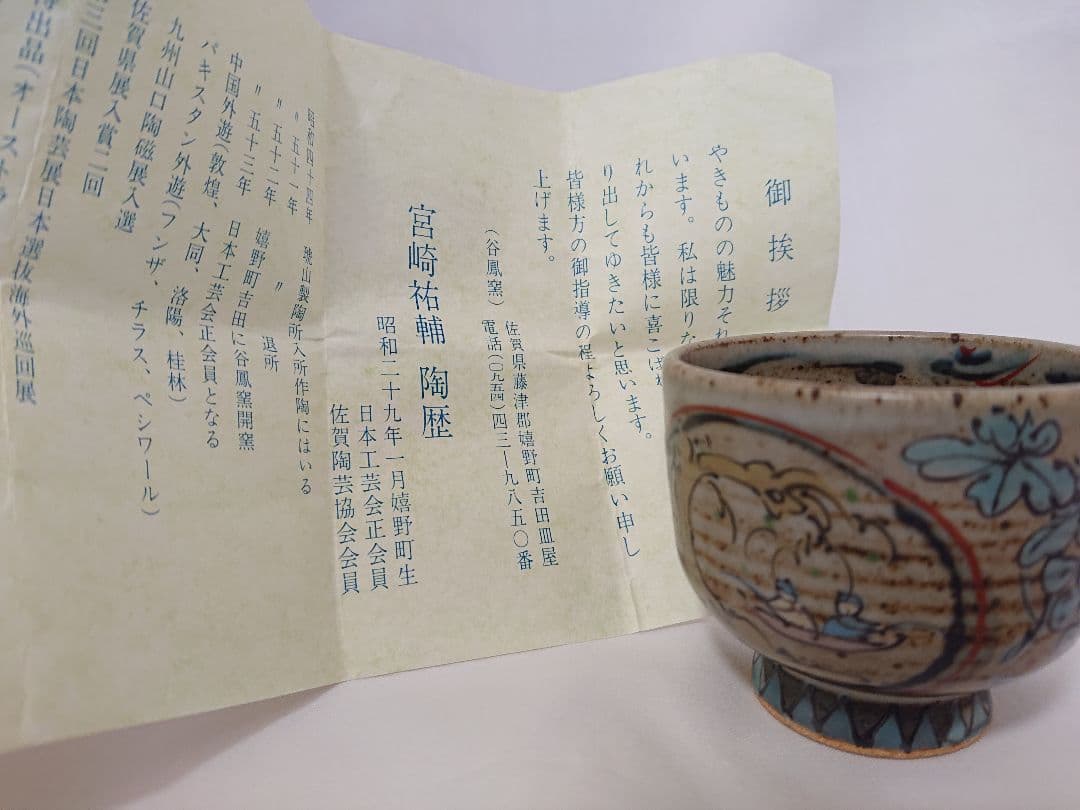 御挨拶
やきものの魅力それ
います。私は限りな
れからも皆様に喜こば
り出してゆきたいと思います。
皆様方の御指導の程よろしくお願い申し
上げます。
佐賀県藤津郡嬉野町吉田皿屋
(谷鳳窯) 電話(〇九五四)四三―九八五〇番
宮崎祐輔 陶歴
昭和二十九年一月嬉野町生
日本工芸会正会員
佐賀陶芸協会会員
昭和四十四年 琥山製陶所入所作陶にはいる
〃 五十一年 〃 退所
〃 五十二年 嬉野町吉田に谷鳳窯開窯
〃 五十三年 日本工芸会正会員となる
中国外遊(敦煌、大同、洛陽、桂林)
パキスタン外遊(フンザ、チラス、ペシワール)
九州山口陶磁展入選
佐賀県展入賞二回
三回日本陶芸展日本選抜海外巡回展
出品(オーストラ